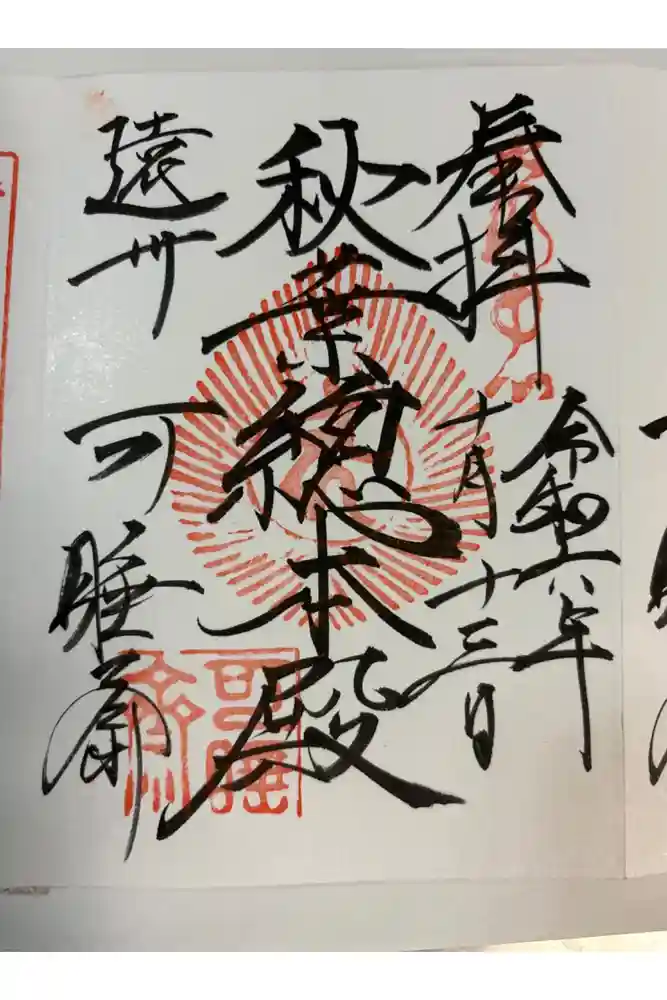 奉拝
令和六年
十月十三日
秋葉總本殿
遠州
可睡斎
可睡